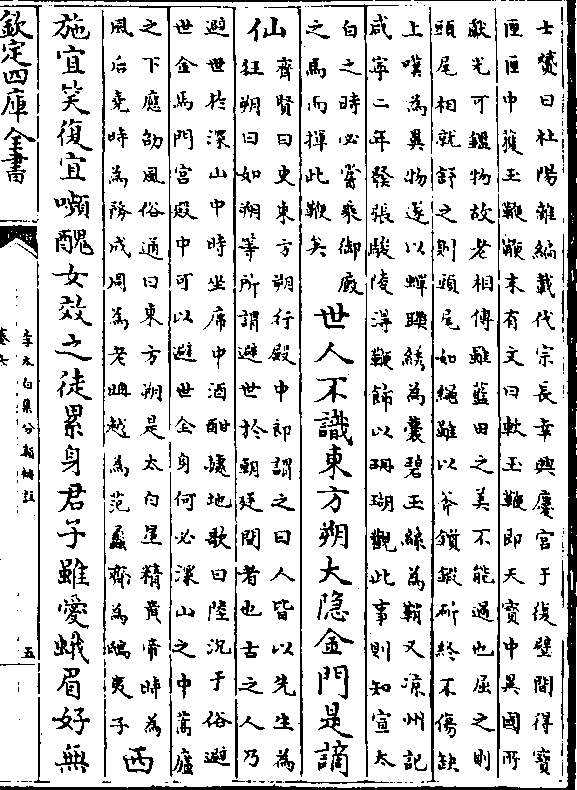 士贇曰杜陽雜編載代宗長幸興慶宮于復壁間得寳
匣匣中獲玉鞭鞭末有文曰軟玉鞭即天寳中異國所
獻光可鑑物故老相傳雖藍田之美不能過也屈之則
頭尾相就舒之則頭尾如繩雖以斧鑕鍜斫終不傷缺
上嘆為異物遂以蟬聯綉為囊碧玉絲為鞘又凉州記
咸寧二年發張駿陵得鞭飾以珊瑚觀此事則知宣太
白之時必嘗乘御廐
之馬而揮此鞭矣
世人不識東方朔大隐金門是謫
仙
齊賢曰史東方朔行殿中郎謂之曰人皆以先生為
狂朔曰如朔等所謂避世於朝廷間者也古之人乃
避世於深山中時坐席中酒酣據地歌曰陸沉于俗避
世金馬門宮殿中可以避世全身何必深山之中蒿廬
之下應劭風俗通曰東方朔是太白星精黄帝時為
風后堯時為務成周為老聃越為范蠡齊為鴟夷子
西
施宜笑復宜嚬醜女效之徒累身君子雖愛蛾眉好無
欽定四庫全書
李太白集分類補註
卷六
五